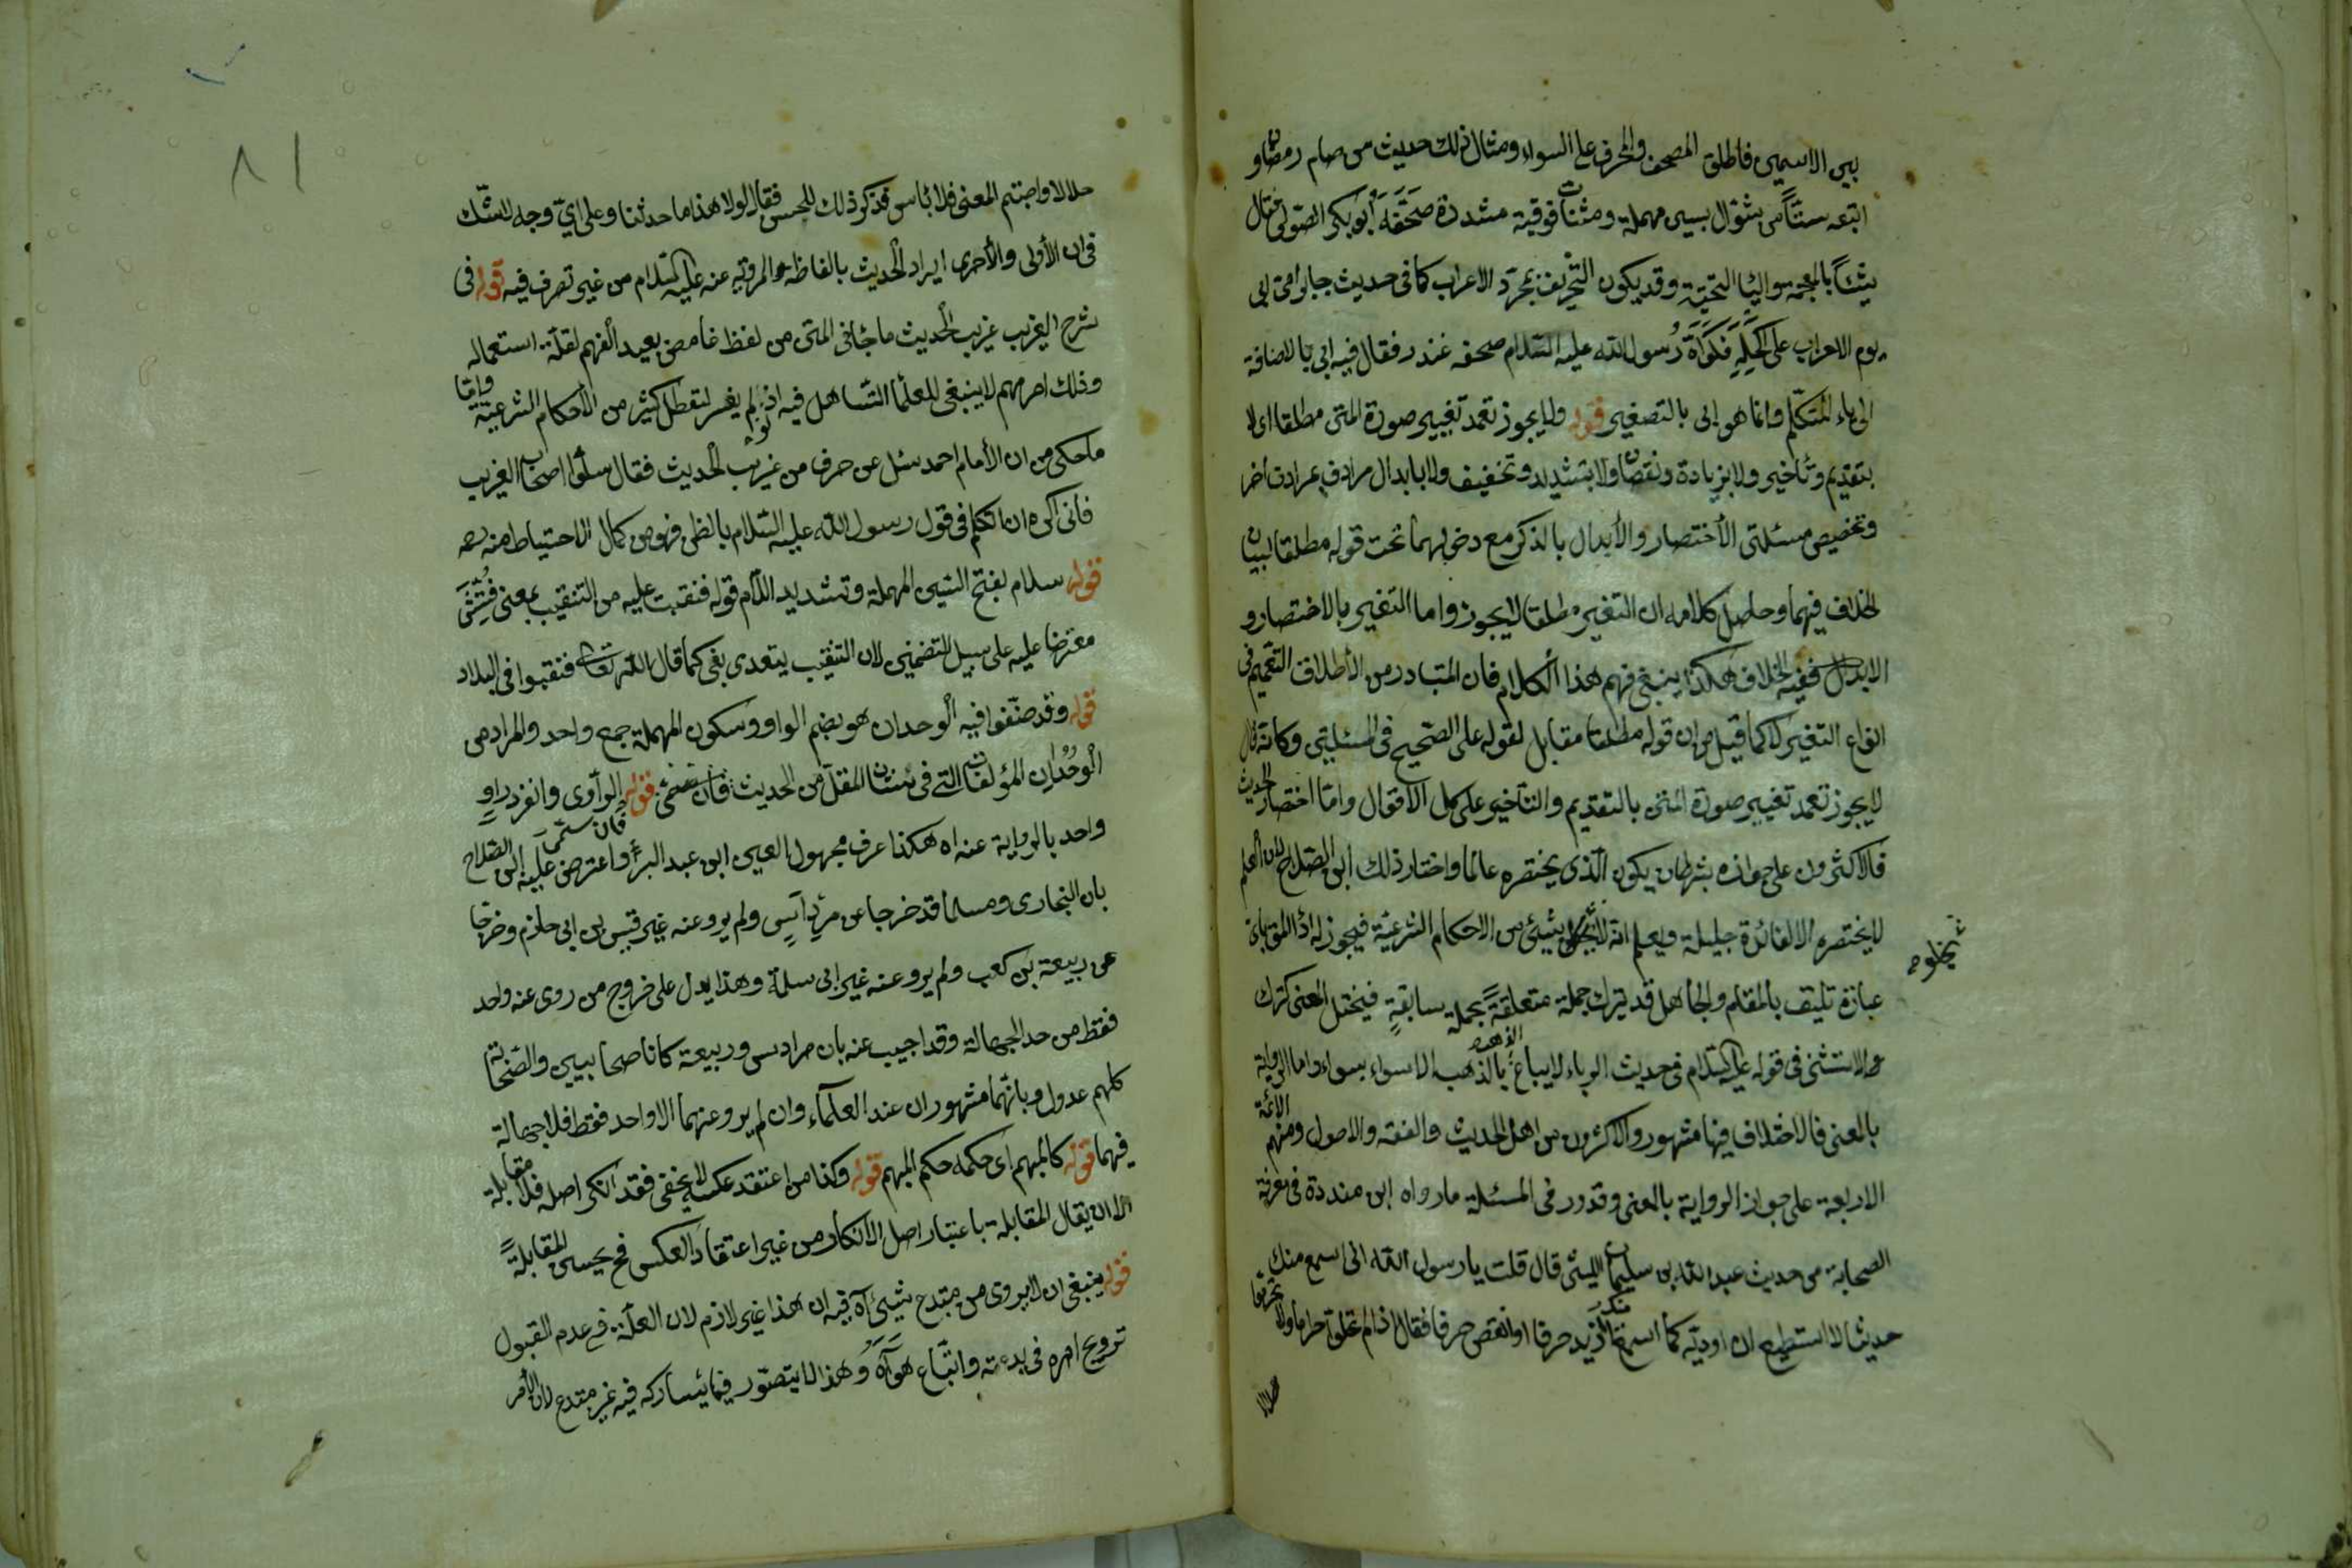 بين الاسمين فاطلق المصحف والمحرف على السواء ومثال ذلك حديث من صام رمضان و
اتبعه ستتاً من شوال بسين مهملة ومثناة فوقية مشددة صَحَّفَهُ أبو بكر الصولى فقال
شيئاً بالمعجمة والياء التحتية وقد يكون التحريف بمجرّد الاعراب كما فى حديث جابر رمى ابى
يوم الاحزاب على اكحله فكواه رسول الله عليه السّلام صحفه غندر فقال فيه ابى بالاضافة
الى ياء المتكلّم وانما هو ابى بالتصغير قوله ولا يجوز تعمد تغيير صورة المتن مطلقا اى لا
بتقديم وتأخير ولا بزيادة ونقصان ولا بتشديد وتخفيف ولا بابدال مرادف بمرادف اخر
وتخصيص مسئلتى الأختصار والأبدال بالذكر مع دخولهما تحت قوله مطلقا لبيان
الخلاف فيهما وحاصل كلامه ان التغيير مطلقا لا يجوز واما التغير بالاختصار و
الابدال ففيه الخلاف هكذا ينبغى فهم هذا الكلام فان المتبادر من الأطلاق التعميم فى
انواع التغير لا كما قيل من ان قوله مطلقا مقابل لقوله على الصّحيح فى المسئلتين وكانه قال
لا يجوز تعمد تغيير صورة المتن بالتقديم والتأخير على كل الاقوال وامّا اختصار الحديث
فالاكثرون على جوازه بشرط ان يكون الّذى يختصره عالما واختار ذلك ابن الصّلاح لان العلم
لا يختصره الا لفائدة جليلة ويعلم انه لا يخل بشيئ من الاحكام الشرعيّة فيجوز له اذ المق بأى
عبارة تليق بالمقام والجاهل قد يترك جملة متعلقةً بجملة سابقةٍ فيختل المعنى كترك
الاستثنى فى قوله عليه السّلام فى حديث الرباء لا يباع الذهب بالذهب الا سواء بسواء واما الرواية
بالمعنى فالاختلاف فيها مشهور والاكثرون من اهل الحديث والفقه والاصول ومنهم الائمّة
الاربعة على جواز الرواية بالمعنى وقد ورد فى المسئلة ما رواه ابن مندة فى معرفة
الصحابة من حديث عبد الله بن سليمان الليثى قال قلت يا رسول الله انى اسمع منك
حديثا لا استطيع ان اوديّه كما اسمع منك ازيد حرفا او انقص حرفا فقال اذا لم تحلّوا حراما ولا تحرموا
حلالا
حلالا واصبتم المعنى فلا بأس فذكر ذلك للحسن فقال لولا هذا ما حدثنا وعلى اىّ وجه لا شك
فى ان الأولى والأحرى ايراد الحديث بالفاظه المروية عنه عليه السّلام من غير تصرف فيه قوله فى
شرح الغريب غريب الحديث ما جاء فى المتن من لفظ غامض بعيد الفهم لقلّة استعماله
وذلك امر مهم لا ينبغى للعلماء التساهل فيه اذ لو لم يفسر لتعطل كثير من الأحكام الشرعيّة وامّا
ما حكى من ان الأمام احمد سئل عن حرف من غريب الحديث فقال سلوا اصحاب الغريب
فانى اكره ان اتكلم فى قول رسول الله عليه السّلام بالظن فهو من كمال الاحتياط منه رحمه
قوله سلام بفتح السّين المهملة وتشديد اللّام قوله فنقبت عليه من التنقيب بمعنى فتّش
معترضا عليه على سبيل التضمين لان التنقيب يتعدى بفى كما قال الله تعالى فنقبوا فى البلاد
قوله وقد صنّفوا فيه الوحدان هو بضم الواو وسكون المهملة جمع واحد والمراد من
الوُحْدان المؤلفات التى فى شأن المقل من الحديث فان سمّى قوله الراوى وانفرد راوٍ
واحد بالرواية عنه اه هكذا عرف مجهول العين ابن عبد البر واعترض عليه ابن الصّلاح
بان البخارى ومسلما قد خرجا عن مرداس ولم يرو عنه غير قيس بن ابى حازم وخرجا
عن ربيعة بن كعب ولم يرو عنه غير ابى سلمة وهذا يدل على خروج من روى عنه واحد
فقط من حد الجهالة وقد اجيب عنه بان مرداس وربيعة كانا صحابيين والصّحابة
كلهم عدول وبانّهما مشهوران عند العلماء وان لم يرو عنهما الا واحد فقط فلا جهالة
فيهما قوله كالمبهم اى حكمه حكم المبهم قوله وكذا من اعتقد عكسه لا يخفى فقد انكر اصله فلا مقابلة
الا ان يقال المقابلة باعتبار اصل الانكار من غير اعتقاد العكس فح يحسن المقابلةً
قوله ينبغى ان لا يروى من مبتدع شيئ آه فيه ان هذا غير لازم لان العلّة فى عدم القبول
ترويج امره فى بدعته واتباع هَوَآهُ وهذا لا يتصوّر فيما يشاركه فيه غير مبتدع لان الأمر
٨١